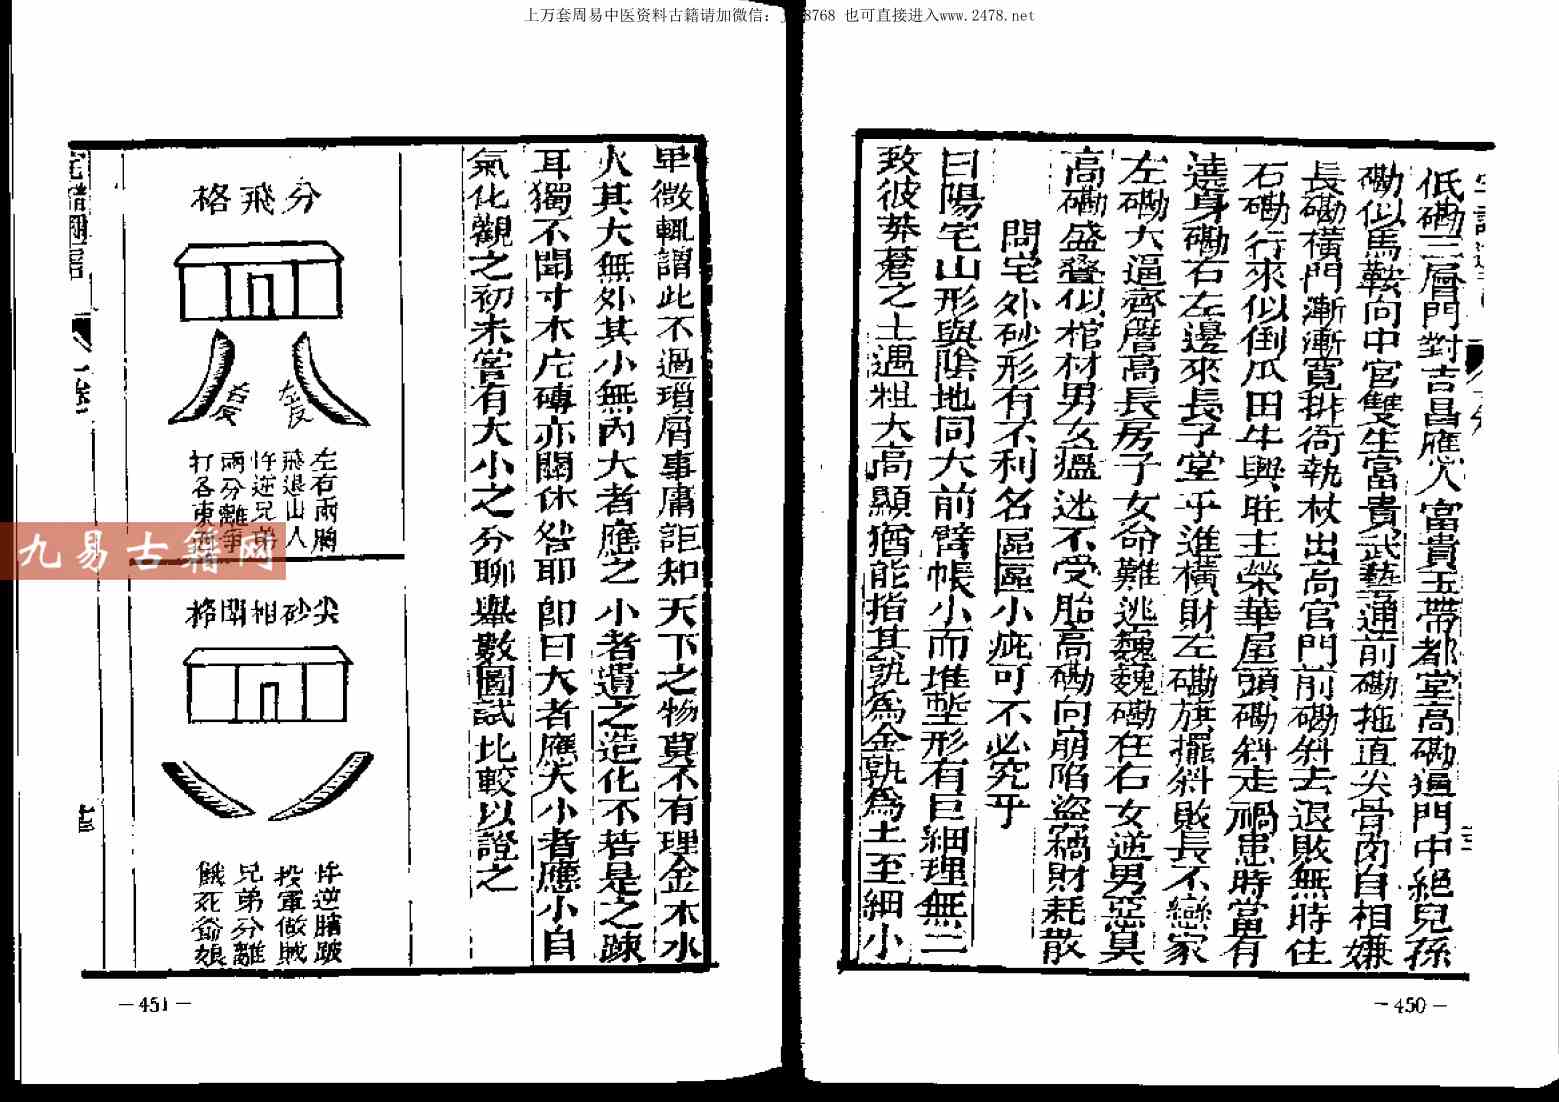 上万套周易中医资料古籍请加微信：8768 也可直接进入www.2478.net
低磡三層門對吉昌應穴富貴玉帶都堂高磡逼門中絕兒孫
磡似馬鞍向中宮雙生富貴武藝通前磡拖直尖骨肉自相嫌
長磡橫門漸漸寬排衙執杖出高官門前磡斜去退敗無時住
右磡行來似倒瓜田牛與旺主榮華屋頭磡斜走禍患時當有
遶身磡右左邊來長子堂乎進橫財左磡旗擺斜敗長不戀家
左磡大逼齊層高長房子女命難逃巍巍磡在右女逆男惡莫
高磡盛疊似棺材男女瘟迷不受胎高磡向崩陷盜竊財耗散
問宅外砂形有不利名區區小疵可不必究乎
曰陽宅山形與陰地同大前臂帳小而堆墊形有巨細理無二
致彼莽蒼之士遇粗大高顯猶能指其孰為金孰為土至細小
—450—
卑微輒謂此不過瑣屑事庸詎知天下之物莫不有理金木水
火其大無外其小無內大者應之小者遺之造化不若是之疎
耳獨不聞寸木片磚亦關休咎耶卽曰大者應大小者應小自
氣化觀之初未嘗有大小之分聊舉數圖試比較以證之
分飛格
右反
左反
左右兩牌
飛退山人
忤逆兄弟
兩分離爭
打各東
尖砂相鬪格
忤逆膳跛
投軍做賊
兄弟分離
餓死爺娘
九易古籍网
—451—